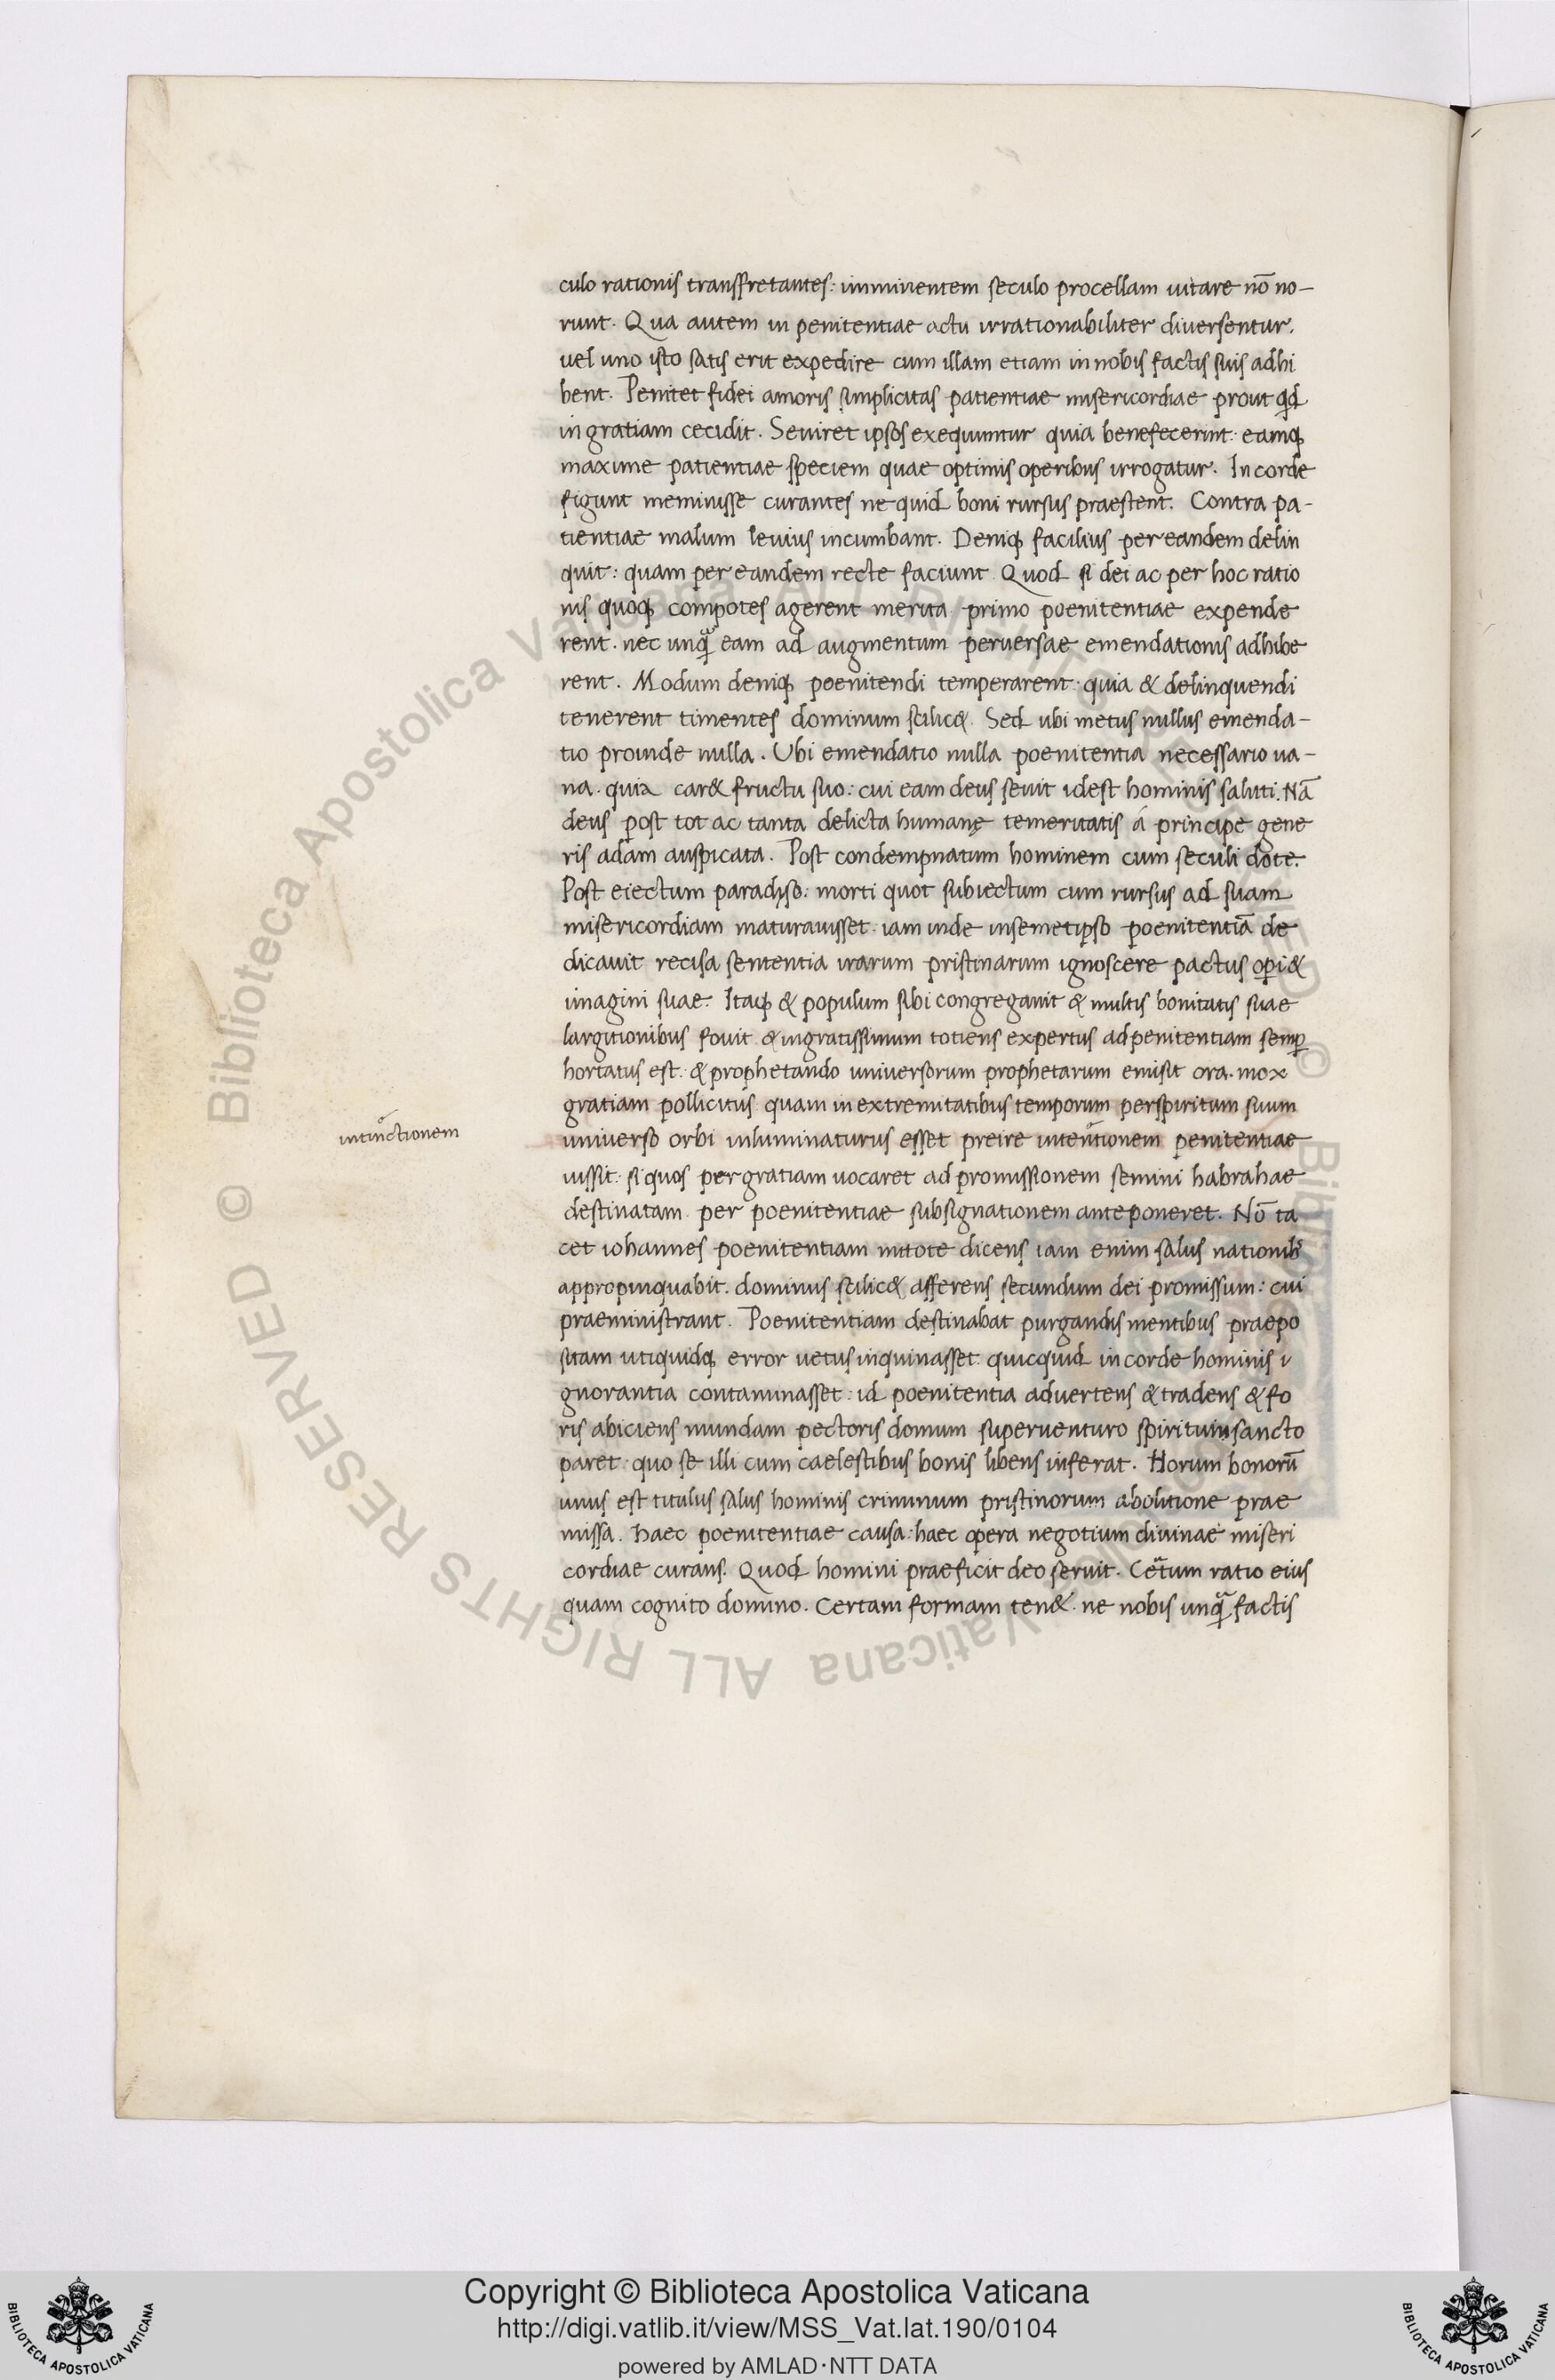 culo rationis transfretantes: imminentem seculo procellam uitare nō no-
runt. Qua autem in penitentiae actu irrationabiliter diuersentur.
uel uno isto satis erit expedire cum illam etiam in nobis factis suis adhi
bent. Penitet fidei amoris simplicitas patientiae misericordiae prout qd
in gratiam cecidit. Seuiret ipsos exequuntur quia benefecerint: eamq;
maxime patientiae speciem quae optimis operibus irrogatur. In corde
figunt meminisse curantes ne quid boni rursus praestent. Contra pa-
tientiae malum leuius incumbant. Deniq; facilius per eandem delin
quit: quam per eandem recte faciunt. Quod si dei ac per hoc ratio
nis quoq; compotes agerent merita primo poenitentiae expende
rent. nec unqᷓ eam ad augmentum peruersae emendationis adhibe
rent. Modum deniq; poenitendi temperarent: quia & delinquendi
tenerent timentes dominum scilic&. Sed ubi metus nullus emenda-
tio proinde nulla. Ubi emendatio nulla poenitentia necessario ua-
na. quia car& fructu suo: cui eam deus seuit idest hominis saluti. Nā
deus post tot ac tanta delicta humanę temeritatis á principe gene
ris adam auspicata. Post condempnatum hominem cum seculi dote.
Post eiectum paradyso: morti quot subiectum cum rursus ad suam
misericordiam maturauisset. iam inde insemetipso poenitentiā de
dicauit recisa sententia irarum pristinarum ignoscere pactus opi &
imagini suae. Itaq; & populum sibi congregauit & multis bonitatis suae
largitionibus fouit & ingratissimum totiens expertus ad penitentiam semp
hortatus est: & prophetando uniuersorum prophetarum emisit ora. mox
gratiam pollicitus quam in extremitatibus temporum per spiritum suum
intinctionem
uniuerso orbi inluminaturus esset preire intentionem penitentiae
iussit: si quos per gratiam uocaret ad promissionem semini habrahae
destinatam per poenitentiae subsignationem anteponeret. Nō ta
cet iohannes poenitentiam initote dicens iam enim salus nationib;
appropinquabit. dominus scilic& afferens secundum dei promissum: cui
praeministrant. Poenitentiam destinabat purgandis mentibus praepo
sitam uti quidq; error uetus inquinasset: quicquid in corde hominis i
gnorantia contaminasset: id poenitentia aduertens & tradens & fo
ris abiciens mundam pectoris domum superuenturo spirituin sancto
paret: quo se illi cum caelestibus bonis libens inferat. Horum bonorū
unus est titulus salus hominis criminum pristinorum abolitione prae
missa. haec poenitentiae causa: haec opera negotium diuinae miseri
cordiae curans. Quod homini praeficit deo seruit. Cetum ratio eius
quam cognito domino. Certam formam ten&. ne nobis unqᷓ factis
Copyright © Biblioteca Apostolica Vaticana
http://digi.vatlib.it/view/MSS_Vat.lat.190/0104
powered by AMLAD·NTT DATA
© Biblioteca Apostolica Vaticana ALL RIGHTS RESERVED
BIBLIOTECA APOSTOLICA VATICANA
BIBLIOTECA APOSTOLICA VATICANA